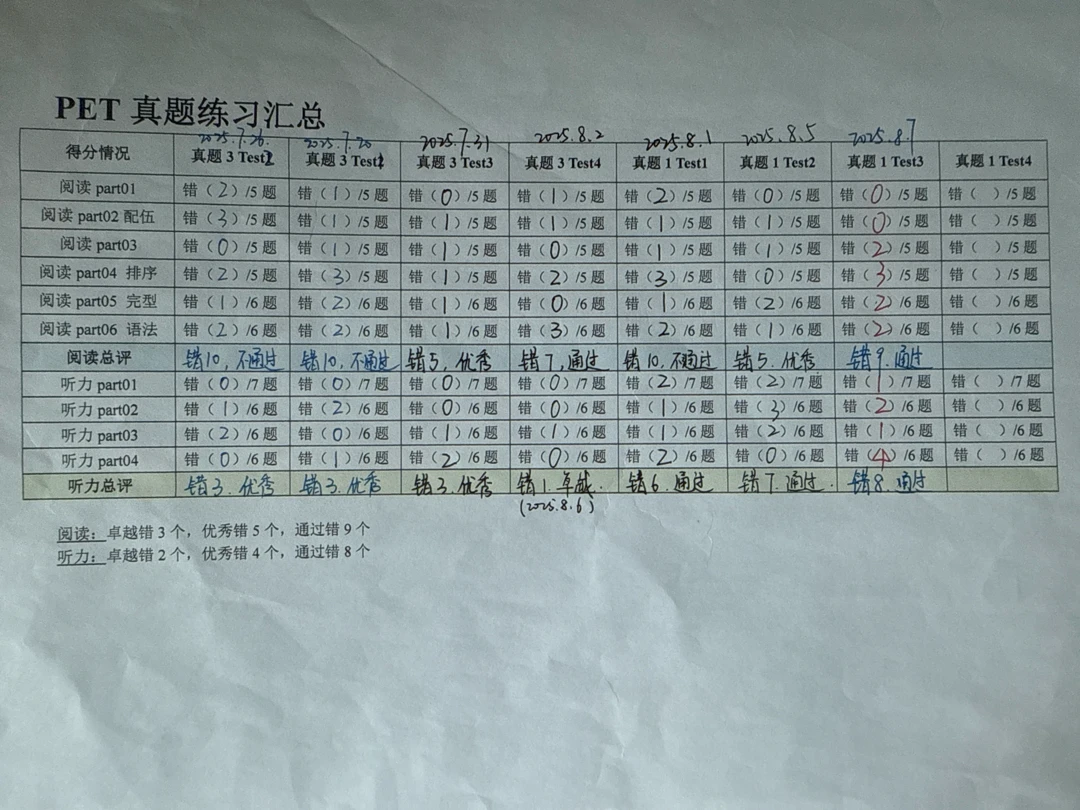 PET 真题练习汇总
2025.7.26. 2025.7.28 2025.7.31 2025.8.2 2025.8.1 2025.8.5 2025.8.7
得分情况 真题 3 Test2 真题 3 Test1 真题 3 Test3 真题 3 Test4 真题 1 Test1 真题 1 Test2 真题 1 Test3 真题 1 Test4
阅读 part01 错（2）/5 题 错（1）/5 题 错（0）/5 题 错（1）/5 题 错（2）/5 题 错（0）/5 题 错（0）/5 题 错（ ）/5 题
阅读 part02 配伍 错（3）/5 题 错（1）/5 题 错（1）/5 题 错（1）/5 题 错（1）/5 题 错（1）/5 题 错（0）/5 题 错（ ）/5 题
阅读 part03 错（0）/5 题 错（1）/5 题 错（1）/5 题 错（0）/5 题 错（1）/5 题 错（1）/5 题 错（2）/5 题 错（ ）/5 题
阅读 part04 排序 错（2）/5 题 错（3）/5 题 错（1）/5 题 错（2）/5 题 错（3）/5 题 错（0）/5 题 错（3）/5 题 错（ ）/5 题
阅读 part05 完型 错（1）/6 题 错（2）/6 题 错（1）/6 题 错（0）/6 题 错（1）/6 题 错（2）/6 题 错（2）/6 题 错（ ）/6 题
阅读 part06 语法 错（2）/6 题 错（2）/6 题 错（1）/6 题 错（3）/6 题 错（2）/6 题 错（1）/6 题 错（2）/6 题 错（ ）/6 题
阅读总评 错10, 不通过 错10, 不通过 错5, 优秀 错7, 通过 错10, 不通过 错5. 优秀 错9. 通过
听力 part01 错（0）/7 题 错（0）/7 题 错（0）/7 题 错（0）/7 题 错（2）/7 题 错（2）/7 题 错（1）/7 题 错（ ）/7 题
听力 part02 错（1）/6 题 错（2）/6 题 错（0）/6 题 错（0）/6 题 错（1）/6 题 错（3）/6 题 错（2）/6 题 错（ ）/6 题
听力 part03 错（2）/6 题 错（0）/6 题 错（1）/6 题 错（1）/6 题 错（1）/6 题 错（2）/6 题 错（1）/6 题 错（ ）/6 题
听力 part04 错（0）/6 题 错（1）/6 题 错（2）/6 题 错（0）/6 题 错（2）/6 题 错（0）/6 题 错（4）/6 题 错（ ）/6 题
听力总评 错3. 优秀 错3. 优秀 错3. 优秀 错1. 卓越. 错6. 通过 错7. 通过. 错8. 通过
(2025.8.6)
阅读：卓越错 3 个，优秀错 5 个，通过错 9 个
听力：卓越错 2 个，优秀错 4 个，通过错 8 个